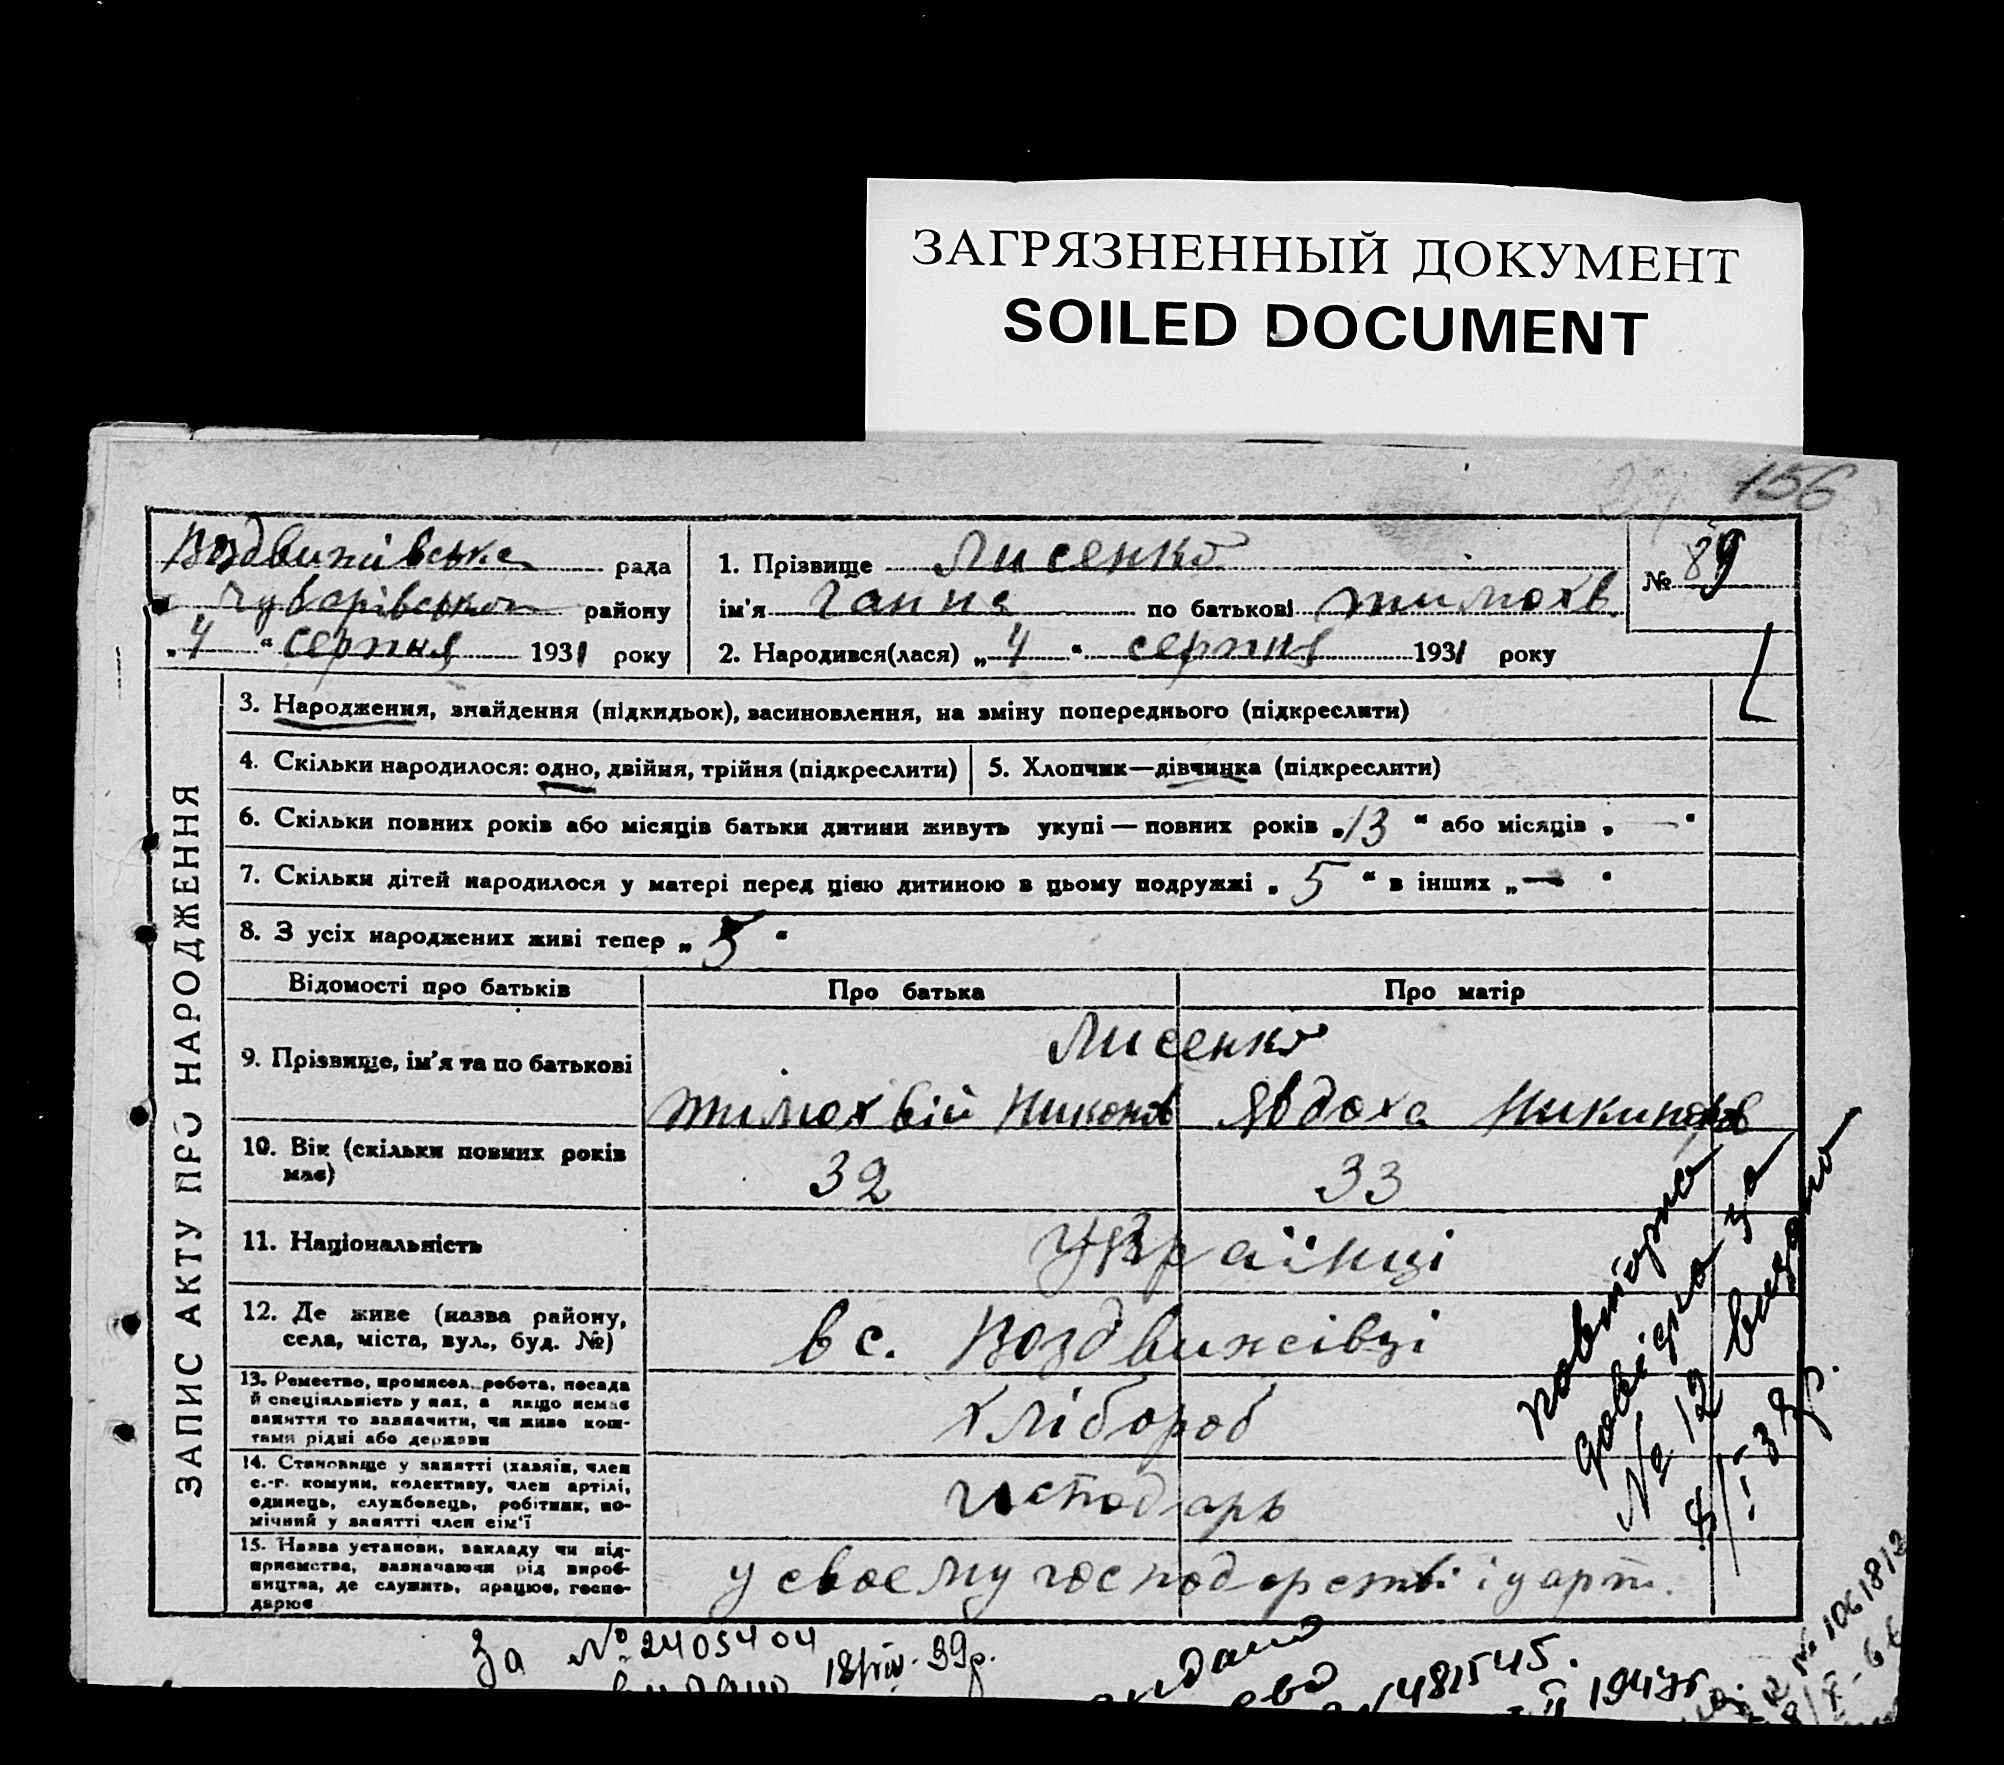 ЗАГРЯЗНЕННЫЙ ДОКУМЕНТ
SOILED DOCUMENT
156
Воздвижівська рада
Чубарівського району
„4“ серпня 1931 року
1. Прізвище Лисенко
ім'я Ганна по батькові Тимохв.
2. Народився(лася) „4“ серпня 1931 року
№ 89
ЗАПИС АКТУ ПРО НАРОДЖЕННЯ
3. Народження, знайдення (підкидьок), засиновлення, на зміну попереднього (підкреслити)
4. Скільки народилося: одно, двійня, трійня (підкреслити)
5. Хлопчик—дівчинка (підкреслити)
6. Скільки повних років або місяців батьки дитини живуть укупі — повних років „13“ або місяців „—“
7. Скільки дітей народилося у матері перед цією дитиною в цьому подружжі „5“ в інших „—“
8. З усіх народжених живі тепер „5“
Відомості про батьків
Про батька
Про матір
9. Прізвище, ім'я та по батькові
Лисенко
Тимохвій Никонов
Явдоха
10. Вік (скільки повних років має)
32
33
11. Національність
Українці
12. Де живе (назва району,
села, міста, вул., буд. №)
в с. Воздвижівці
13. Ремество, промисел, робота, посада
й спеціяльність у них, а якщо немає
заняття то зазначити, чи живе кош-
тами рідні або держави
хлібороб
14. Становище у занятті (хазяїн, член
с.-г. комуни, колективу, член артілі,
одинець, службовець, робітник, по-
мічний у занятті член сім'ї
господарь
15. Назва установи, закладу чи під-
приємства, зазначаючи рід вироб-
ництва, де служить, працює, госпо-
дарює
у своєму господарстві і у арт.
повторно
довідка за
№ 12 видано
За № 2405404
видано 18/VIII-39р.
видано
481545.
1947г.
№ 1061812